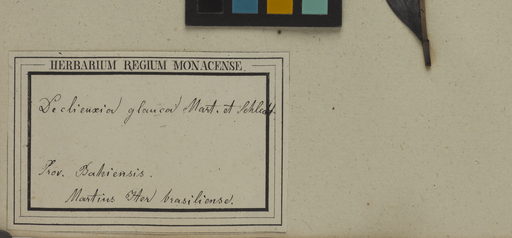 HERBARIUM REGIUM MONACENSE.
Declieuxia glauca Mart. et Schlcht.
Prov. Bahiensis.
Martius Iter brasiliense.